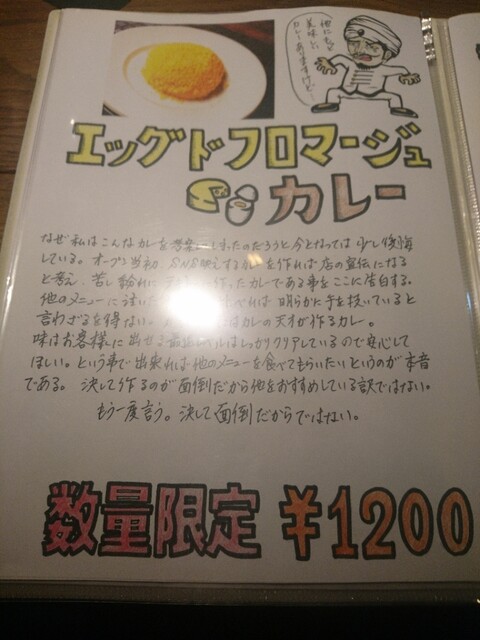 他にもっと
美味しい
カレーありますけど…
エッグドフロマージュ
カレー
なぜ私はこんなカレーを考案してしまったのだろうと今となっては少し後悔
している。オープン当初、SNS映えするカレーを作れば店の宣伝になる
と考え、苦し紛れに 作ったカレーである事をここに告白する。
他のメニューに 比べれば明らかに手を抜いていると
言わざるを得ない。 はカレーの天才が作るカレー。
味はお客様に出せる最低レベルはしっかりクリアしているので安心して
ほしい。という事で出来れば他のメニューを食べてもらいたいというのが本音
である。決して作るのが面倒だから他をおすすめしている訳ではない。
もう一度言う。決して面倒だからではない。
数量限定 ¥1200